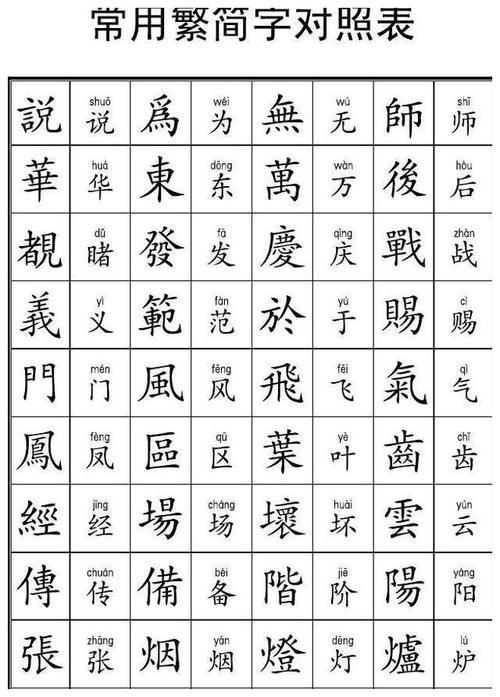 常用繁简字对照表
説 shuō 说 爲 wéi 为 無 wú 无 師 shī 师
華 huá 华 東 dōng 东 萬 wàn 万 後 hòu 后
覩 dǔ 睹 發 fā 发 慶 qìng 庆 戰 zhàn 战
義 yì 义 範 fàn 范 於 yú 于 賜 cì 赐
門 mén 门 風 fēng 风 飛 fēi 飞 氣 qì 气
鳳 fèng 凤 區 qū 区 葉 yè 叶 齒 chǐ 齿
經 jīng 经 場 cháng 场 壞 huài 坏 雲 yún 云
傳 chuán 传 備 bèi 备 階 jiē 阶 陽 yáng 阳
張 zhāng 张 烟 yān 烟 燈 dēng 灯 爐 lú 炉